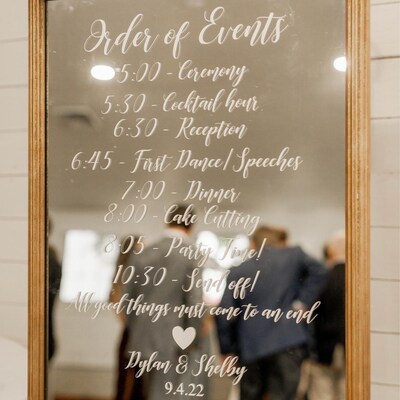 Order of Events
5:00 - Ceremony
5:30 - Cocktail hour
6:30 - Reception
6:45 - First Dance/Speeches
7:00 - Dinner
8:00 - Cake Cutting
8:05 - Party Time!
10:30 - Send off!
All good things must come to an end
Dylan & Shelby
9.4.22